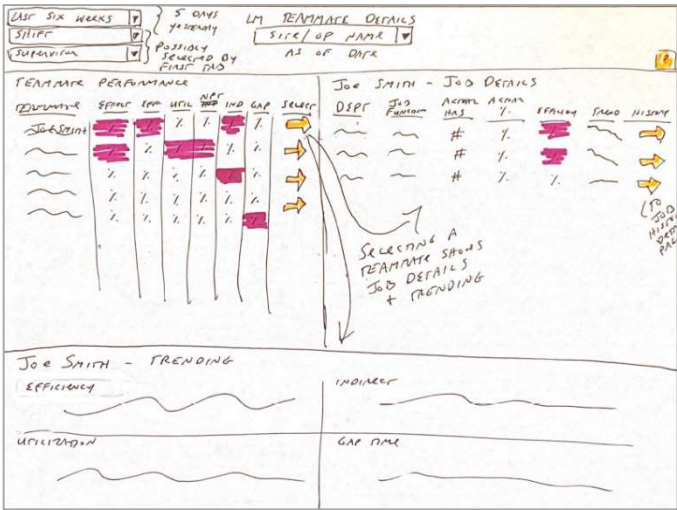 LAST SIX WEEKS
SHIFT
SUPERVISOR
5 DAYS
YESTERDAY
POSSIBLY
SELECTED BY
FIRST TAB
LM TEAMMATE DETAILS
SITE / OP NAME
AS OF DATE
TEAMMATE PERFORMANCE
TEAMMATE EFFECT EFF UTIL NPT IND GAP SELECT
JOE SMITH % % % % % %
% % % % % %
% % % % % %
% % % % % %
% % % % % %
JOE SMITH - JOB DETAILS
DEPT JOB FUNCTION ACTUAL HRS ACTUAL % EFFICIENCY TREND HISTORY
# % %
# % %
# % %
(TO
JOB
HISTORY
DETAIL
PAGE
SELECTING A
TEAMMATE SHOWS
JOB DETAILS
+ TRENDING
JOE SMITH - TRENDING
EFFICIENCY
INDIRECT
UTILIZATION
GAP TIME